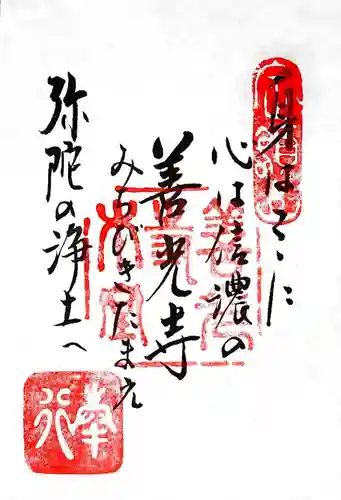 身はここに
心は信濃の
善光寺
みちびきたまえ
弥陀の浄土へ
奉行